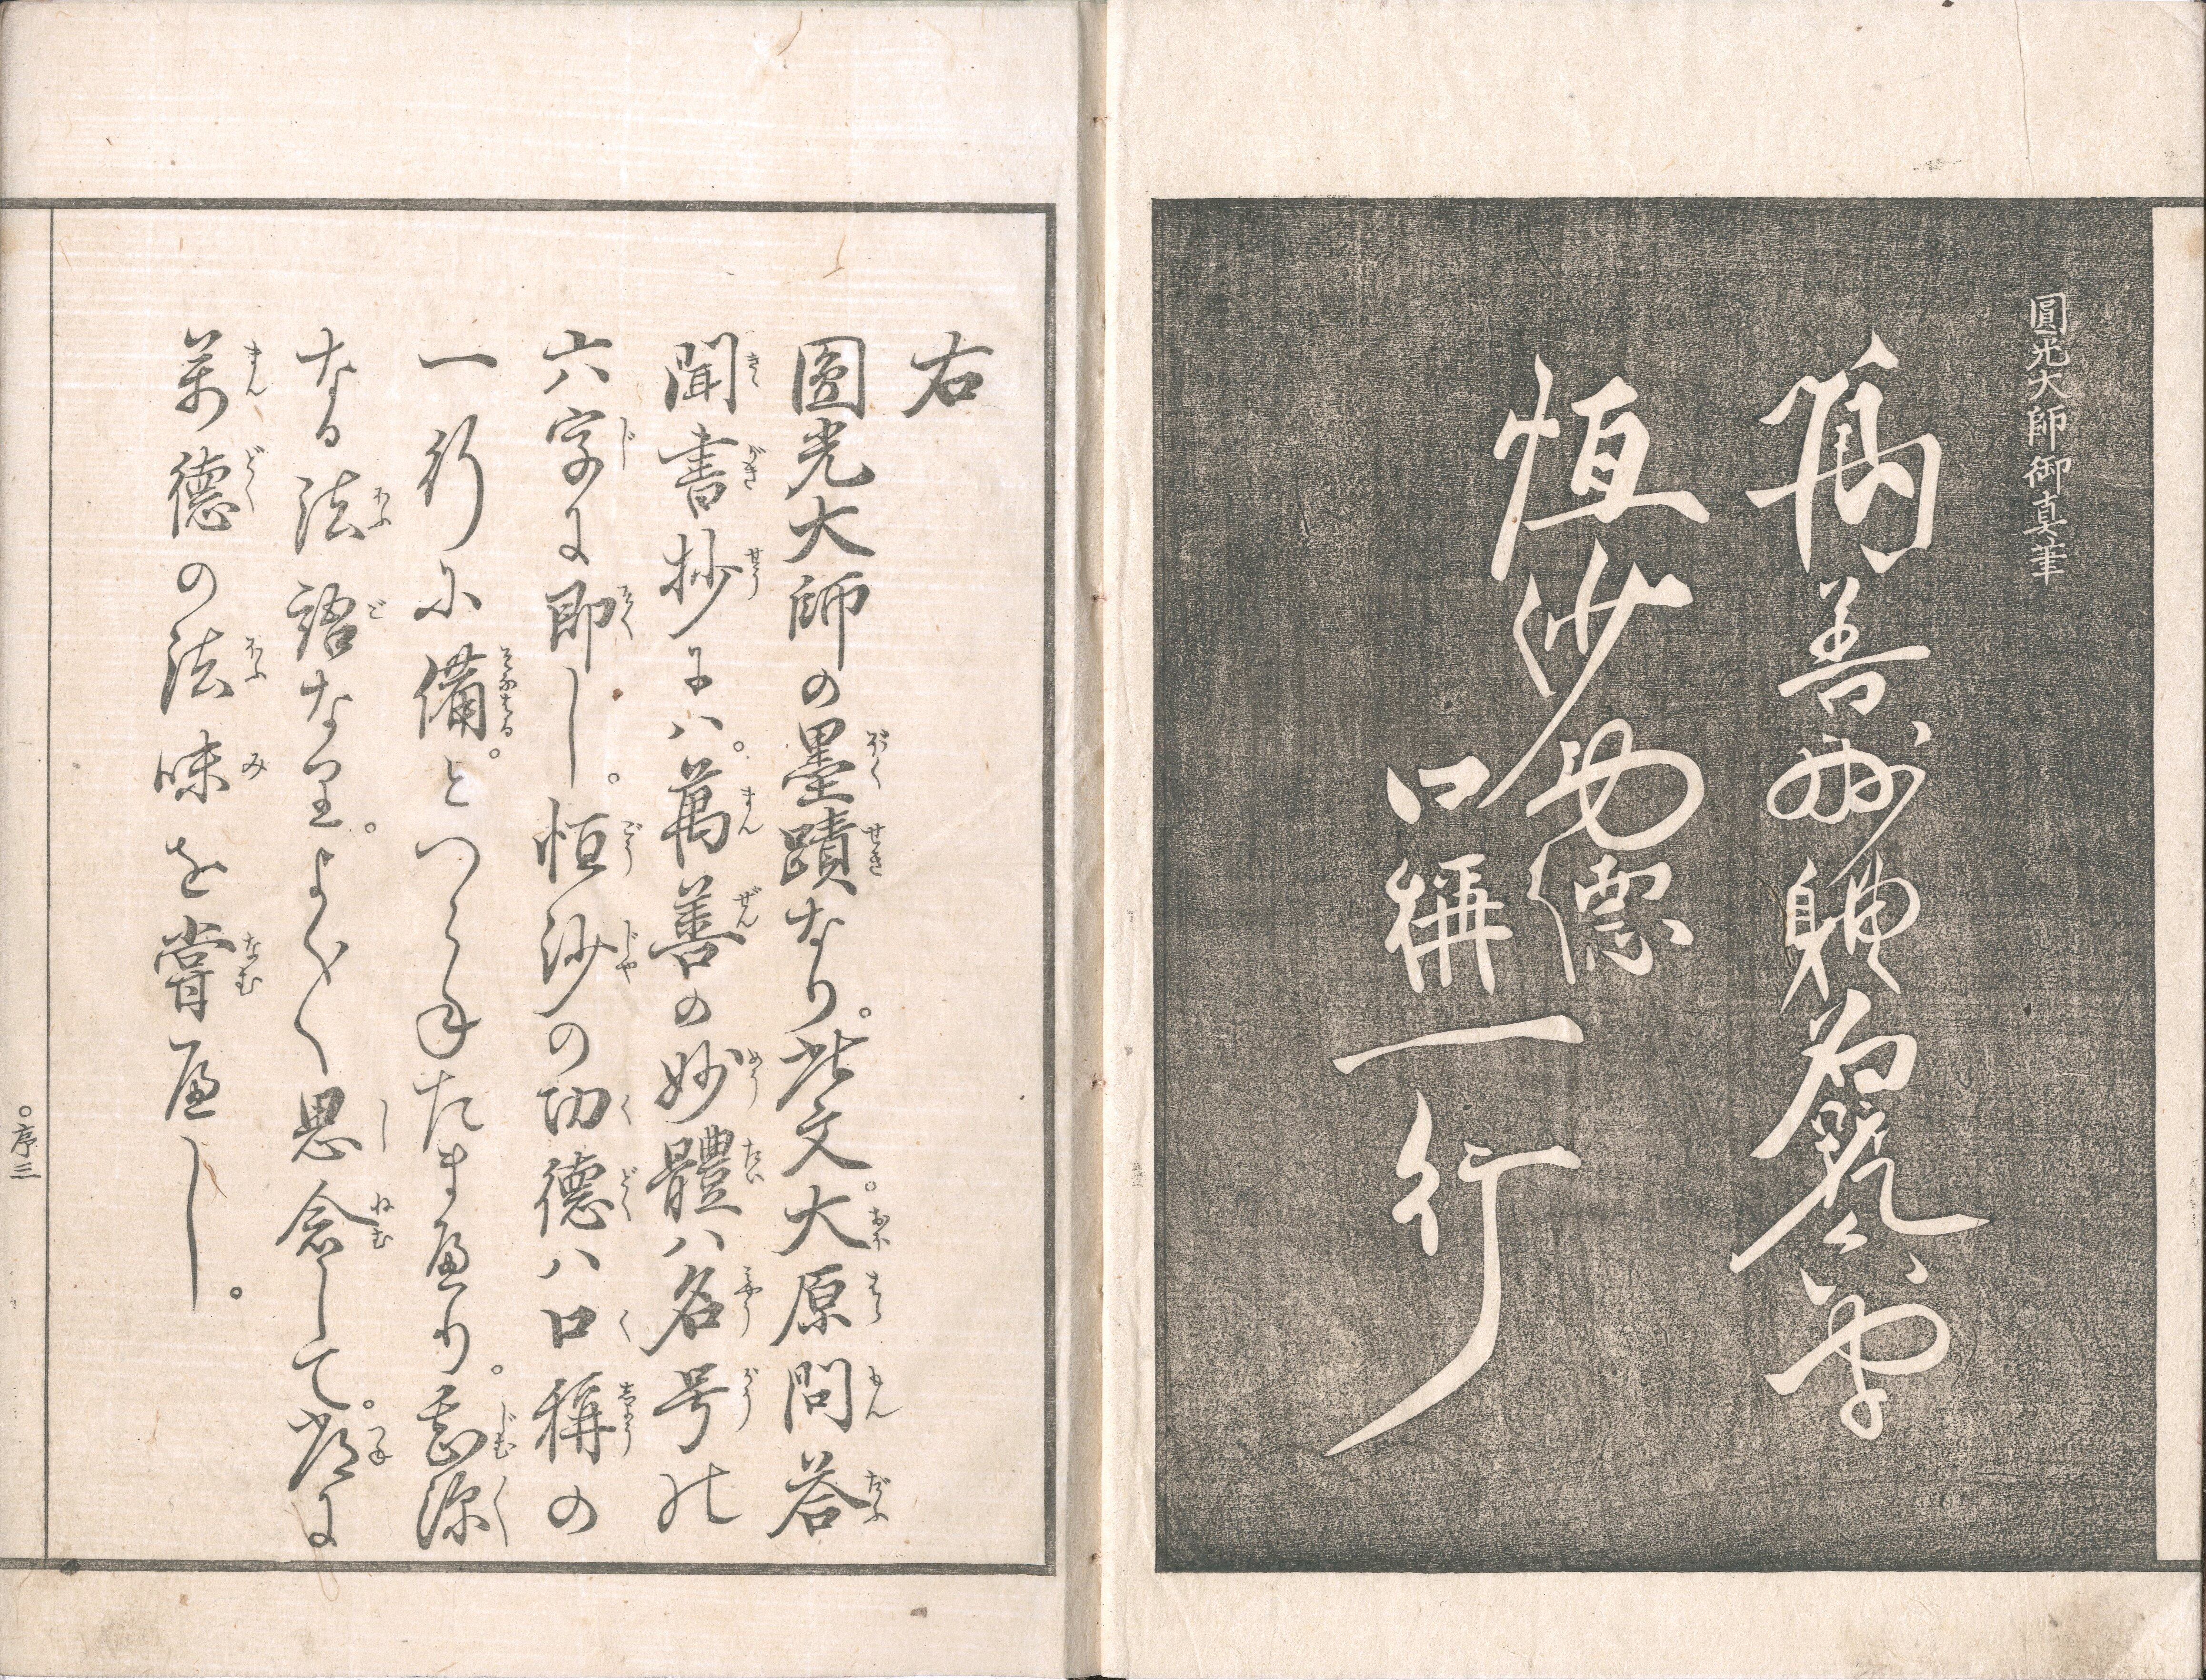 圓光大師御真筆
萬善妙躰名號六字
恒沙功德
口稱一行
右
圓光大師の墨蹟なり。此文。大原問答
聞書抄にハ。萬善の妙體ハ名号の
六字に即し。恒沙の功德ハ口稱の
一行に備。とつらねたまへり。甚深
なる法語なり。よく〱思念して。常に
万德の法味を嘗へし。
○序三